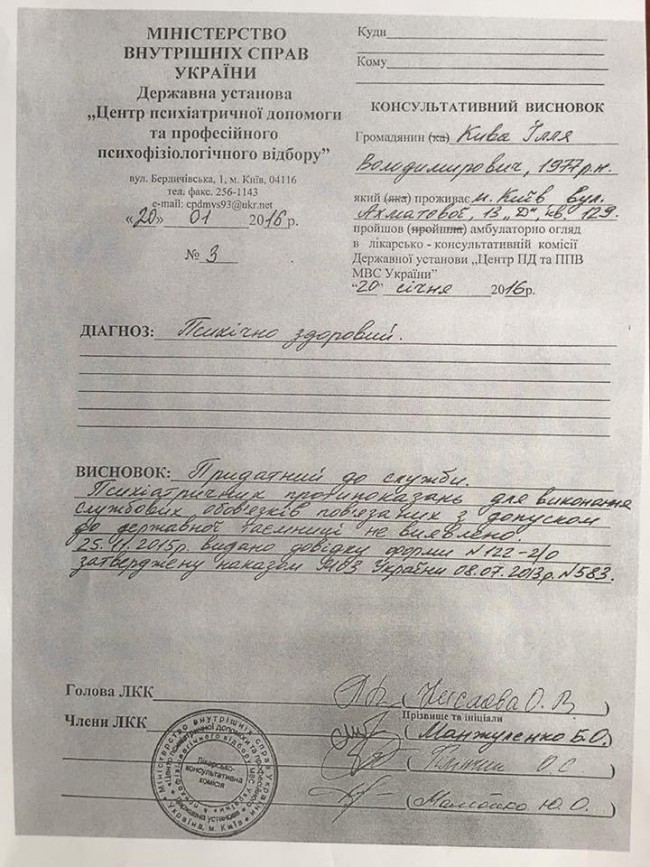 МІНІСТЕРСТВО
ВНУТРІШНІХ СПРАВ
УКРАЇНИ
Державна установа
„Центр психіатричної допомоги
та професійного
психофізіологічного відбору”
вул. Бердичівська, 1, м. Київ, 04116
тел. факс. 256-1143
e-mail: cpdmvs93@ukr.net
«20» 01 2016 р.
№ 3
Куди
Кому
КОНСУЛЬТАТИВНИЙ ВИСНОВОК
Громадянин (ка) Кива Ілля
Володимирович, 1977 р.н.
який (яка) проживає м. Київ вул.
Ахматової, 13 „Д", кв. 129.
пройшов (пройшла) амбулаторно огляд
в лікарсько - консультативній комісії
Державної установи „Центр ПД та ППВ
МВС України”
“20” січня 2016р.
ДІАГНОЗ: Психічно здоровий.
ВИСНОВОК: Придатний до служби.
Психіатричних протипоказань для виконання
службових обов'язків пов'язаних з допуском
до державної таємниці не виявлено.
25.11.2015р. видано довідку форми №122-2/о
затверджену наказом МОЗ України 08.07.2013р. №583.
Голова ЛКК О. В.
Прізвище та ініціали
Члени ЛКК Манжуленко Б.О.
О. С.
Ю. О.
Міністерство внутрішніх справ України
Лікарсько-
консультативна
комісія
Державна установа
Україна, м. Київ